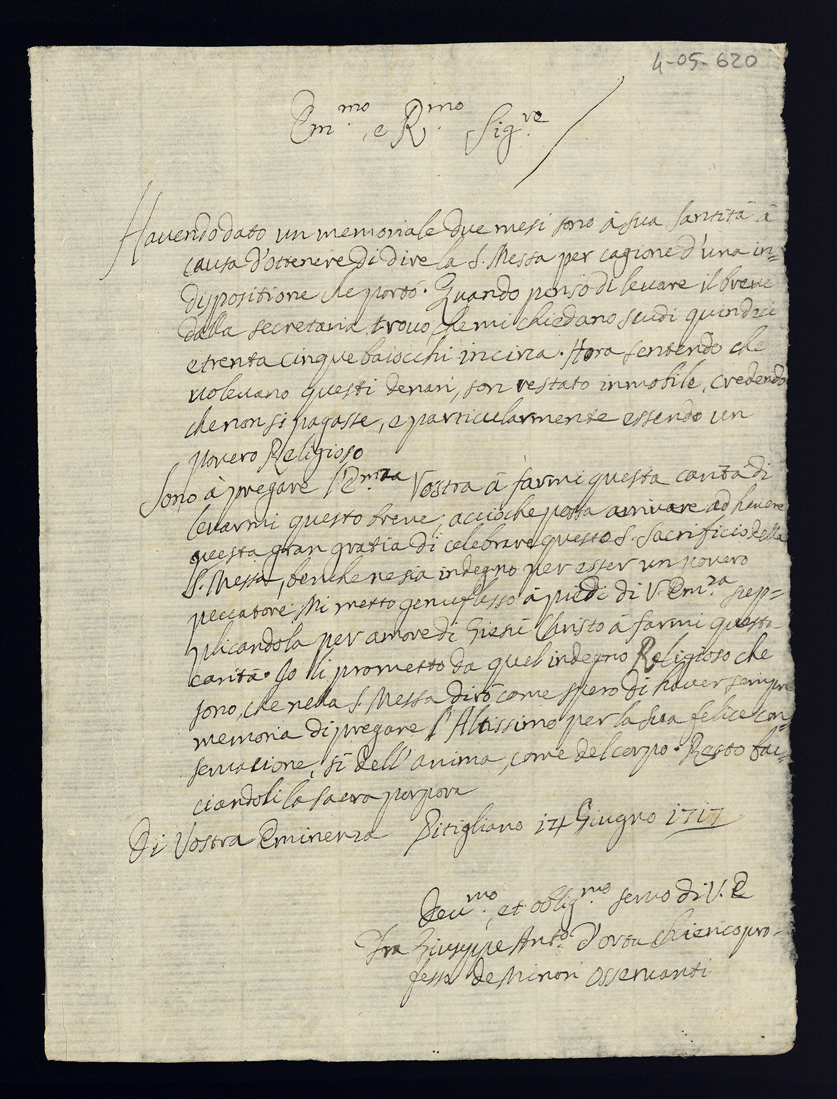 4-05-620
Em.mo e R.mo Sig.re
Havendo dato un memoriale due mesi sono à sua santità à
causa d'ottenere di dire la S. Messa per cagione d'una in=
dispositione che porto. Quando penso di levare il breve
dalla secretaria, trovo che mi chiedano scudi quindeci
e trenta cinque baiocchi in circa. Hora sentendo che
volevano questi denari, son restato immobile, credendo
che non si pagasse, e particularmente essendo un
povero Religioso
Sono à pregare l'Em.za Vostra à farmi questa carità di
levarmi questo breve, acciò che possa arrivare ad havere
questa gran gratia di celebrare questo S. Sacrificio della
S. Messa, benche ne sia indegno per esser un povero
peccatore. Mi metto genuflesso à piedi di V. Em.za sup=
plicandola per amore di Giesù Christo à farmi questa
carità. Io li prometto da quel indegno Religioso che
sono, che nella S. Messa dirò come spero di haver sempre
memoria di pregare l'Altissimo per la sua felice con=
servazione, sì dell'anima, come del corpo. Resto bac=
ciandoli la sacra porpora
Di Vostra Eminenza Pitigliano 14 Giugno 1717
Dev.mo, et oblig.mo servo di V. E
Fra Giuseppe Ant.o d'Orta chierico pro=
fesso de Minori Osservanti